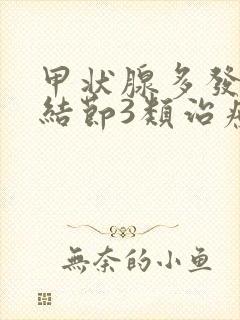 甲状腺多發
結節3類治
無奈的小鱼